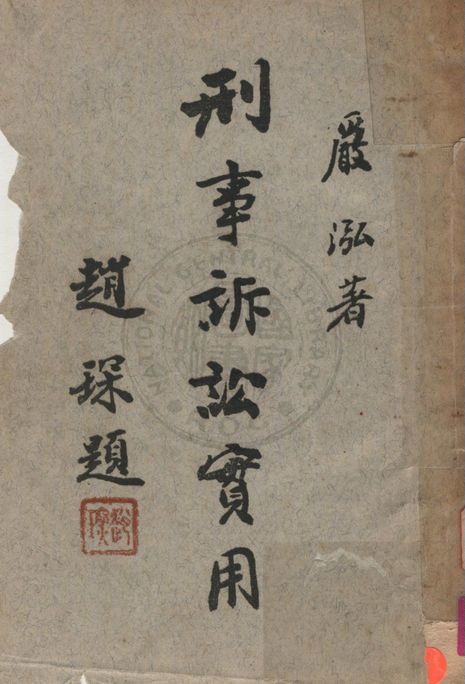 嚴泓著
刑事訴訟實用
趙琛題
NATIONAL CENTRAL LIBRARY